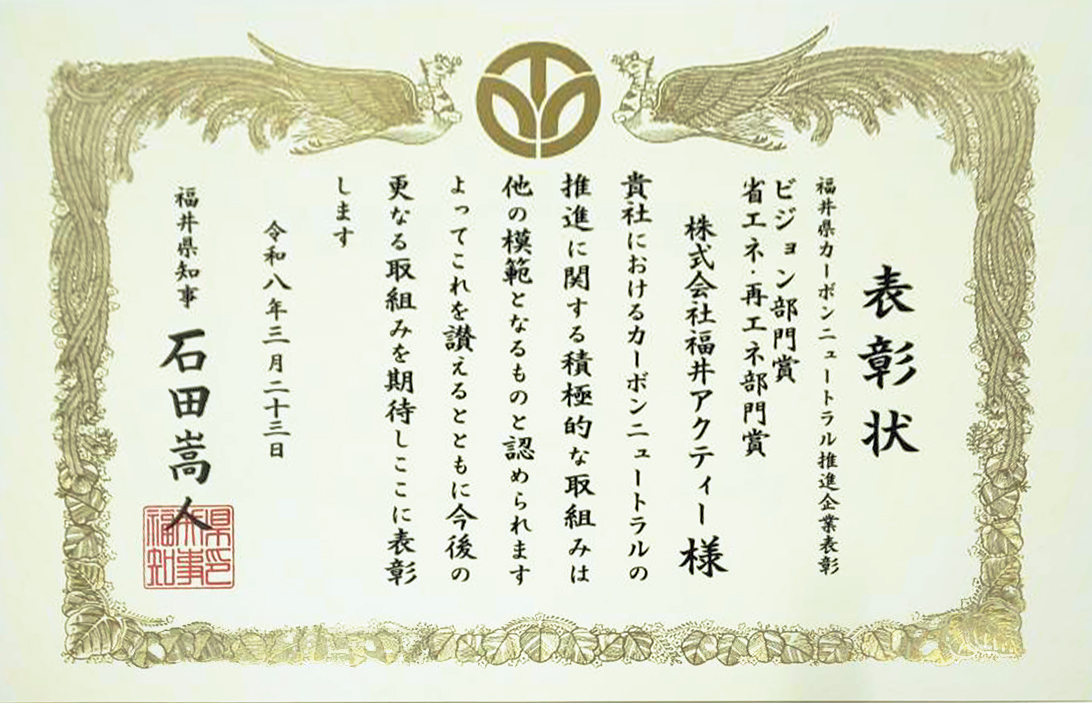 表彰状
福井県カーボンニュートラル推進企業表彰
ビジョン部門賞
省エネ・再エネ部門賞
株式会社福井アクティー 様
貴社におけるカーボンニュートラルの
推進に関する積極的な取組みは
他の模範となるものと認められます
よってこれを讃えるとともに今後の
更なる取組みを期待しここに表彰
します
令和八年三月二十三日
福井県知事 石田嵩人
福井県知事印